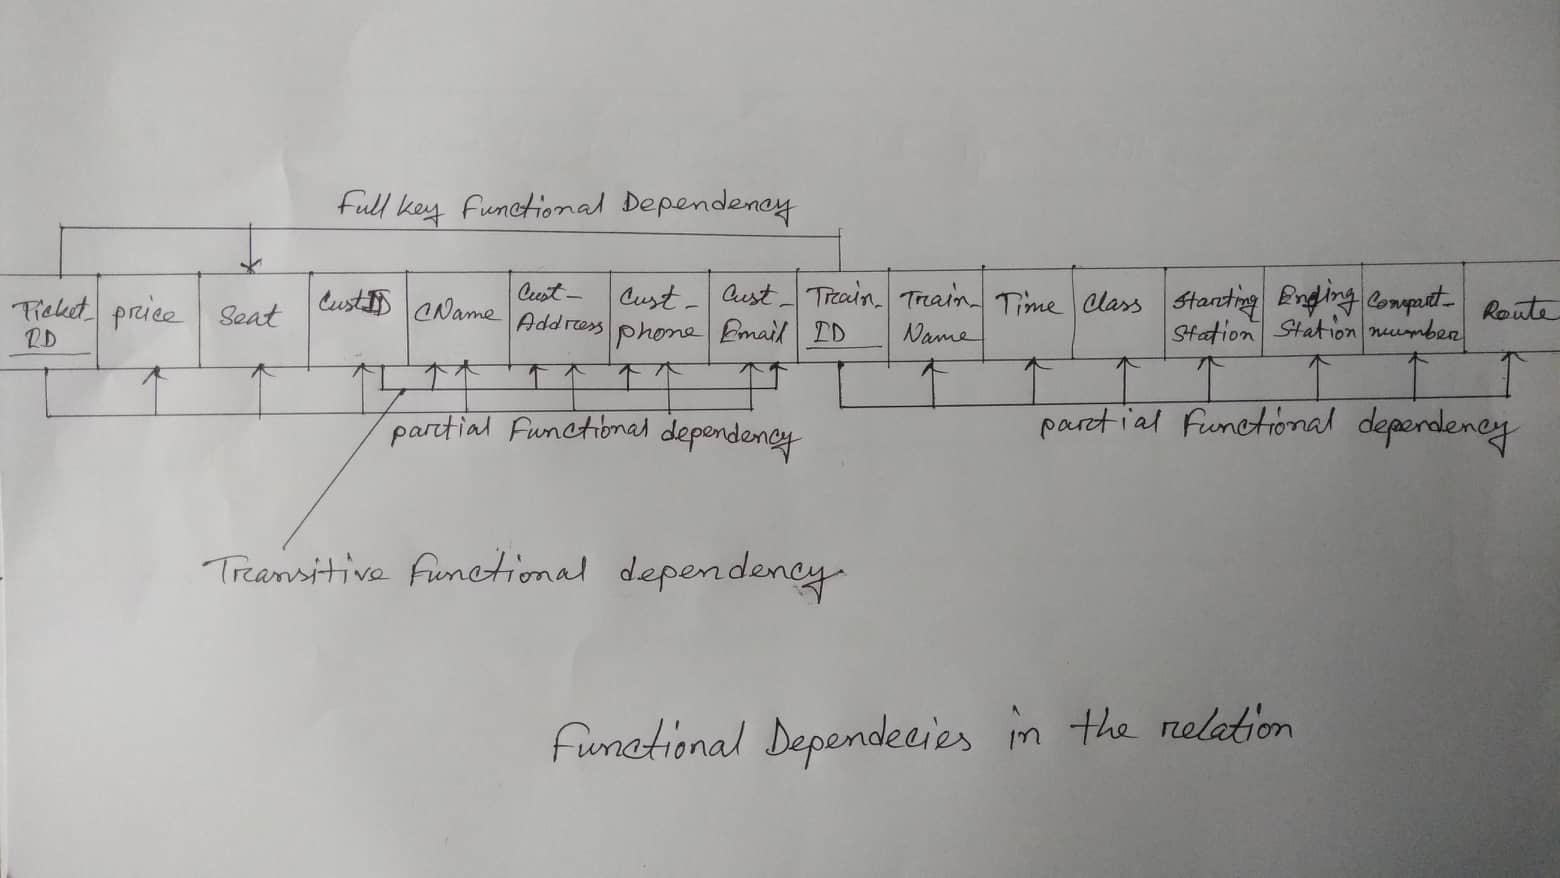 Full key Functional Dependency
Ticket_ ID
price
Seat
CustID
CName
Cust- Address
Cust- phone
Cust- Email
Train_ ID
Train_ Name
Time
Class
Starting Station
Ending Station
Compart- number
Route
partial Functional dependency
partial Functional dependency
Transitive Functional dependency
Functional Dependecies in the relation